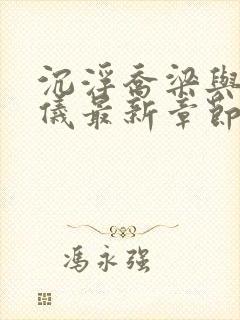 沉浮喬梁與
儀最新章節
馮永强